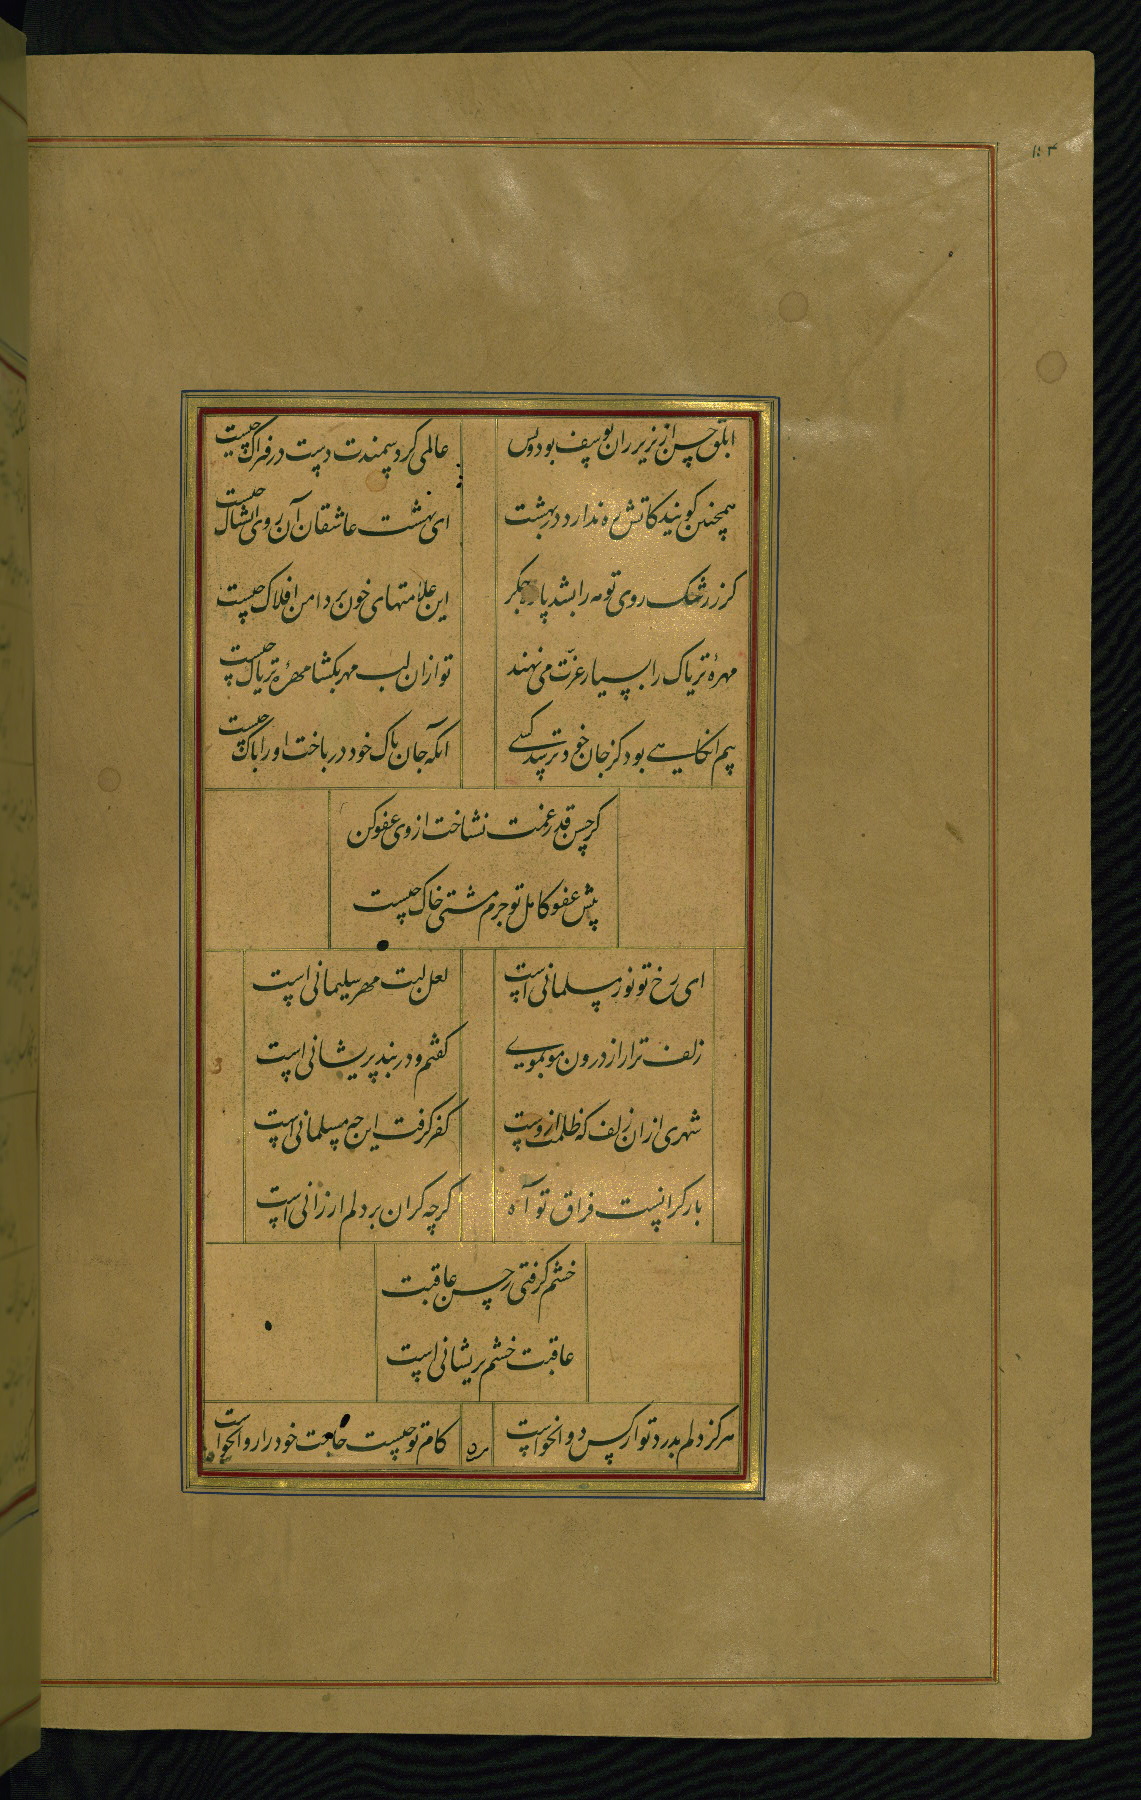 ۱۱۳
ابلق حسن از زیر ران یوسف بود و بس
عالمی کرد سمندت دست در فتراک چیست
همچنین کویند کاتش ره ندارد در بهشت
ای بهشت عاشقان آن روی آتشناک چیست
کر ز رشک روی تو مه را بشد پاره جکر
این علامتهای خون بر دامن افلاک چیست
مهرهٔ تریاک را بسیار عزّت می نهند
تو ازان لب مهر بکشا مهرهٔ تریاک چیست
بیم انکاهی بود کز جان خود ترسد کسی
آنکه جان پاک خود در باخت او را باک چیست
کر حسن قدر غمت نشناخت از وی عفو کن
پیش عفو کامل تو جرم مشتی خاک چیست
ای رخ تو نور مسلمانی است
لعل لبت مهر سلیمانی است
زلف ترا از درون مو بموی
کفتم و در بند پریشانی است
شهری ازان زلف که ظلمت ازوست
کفر کرفت این چه مسلمانی است
بار کرانیست فراق تو آه
کرچه کران بر دلم ارزانی است
خشم کرفتی ز حسن عاقبت
عاقبت خشم پریشانی است
هرکز دلم بدرد تو از کس دوا نخواست
کام تو جست حاجت خود را روا نخواست